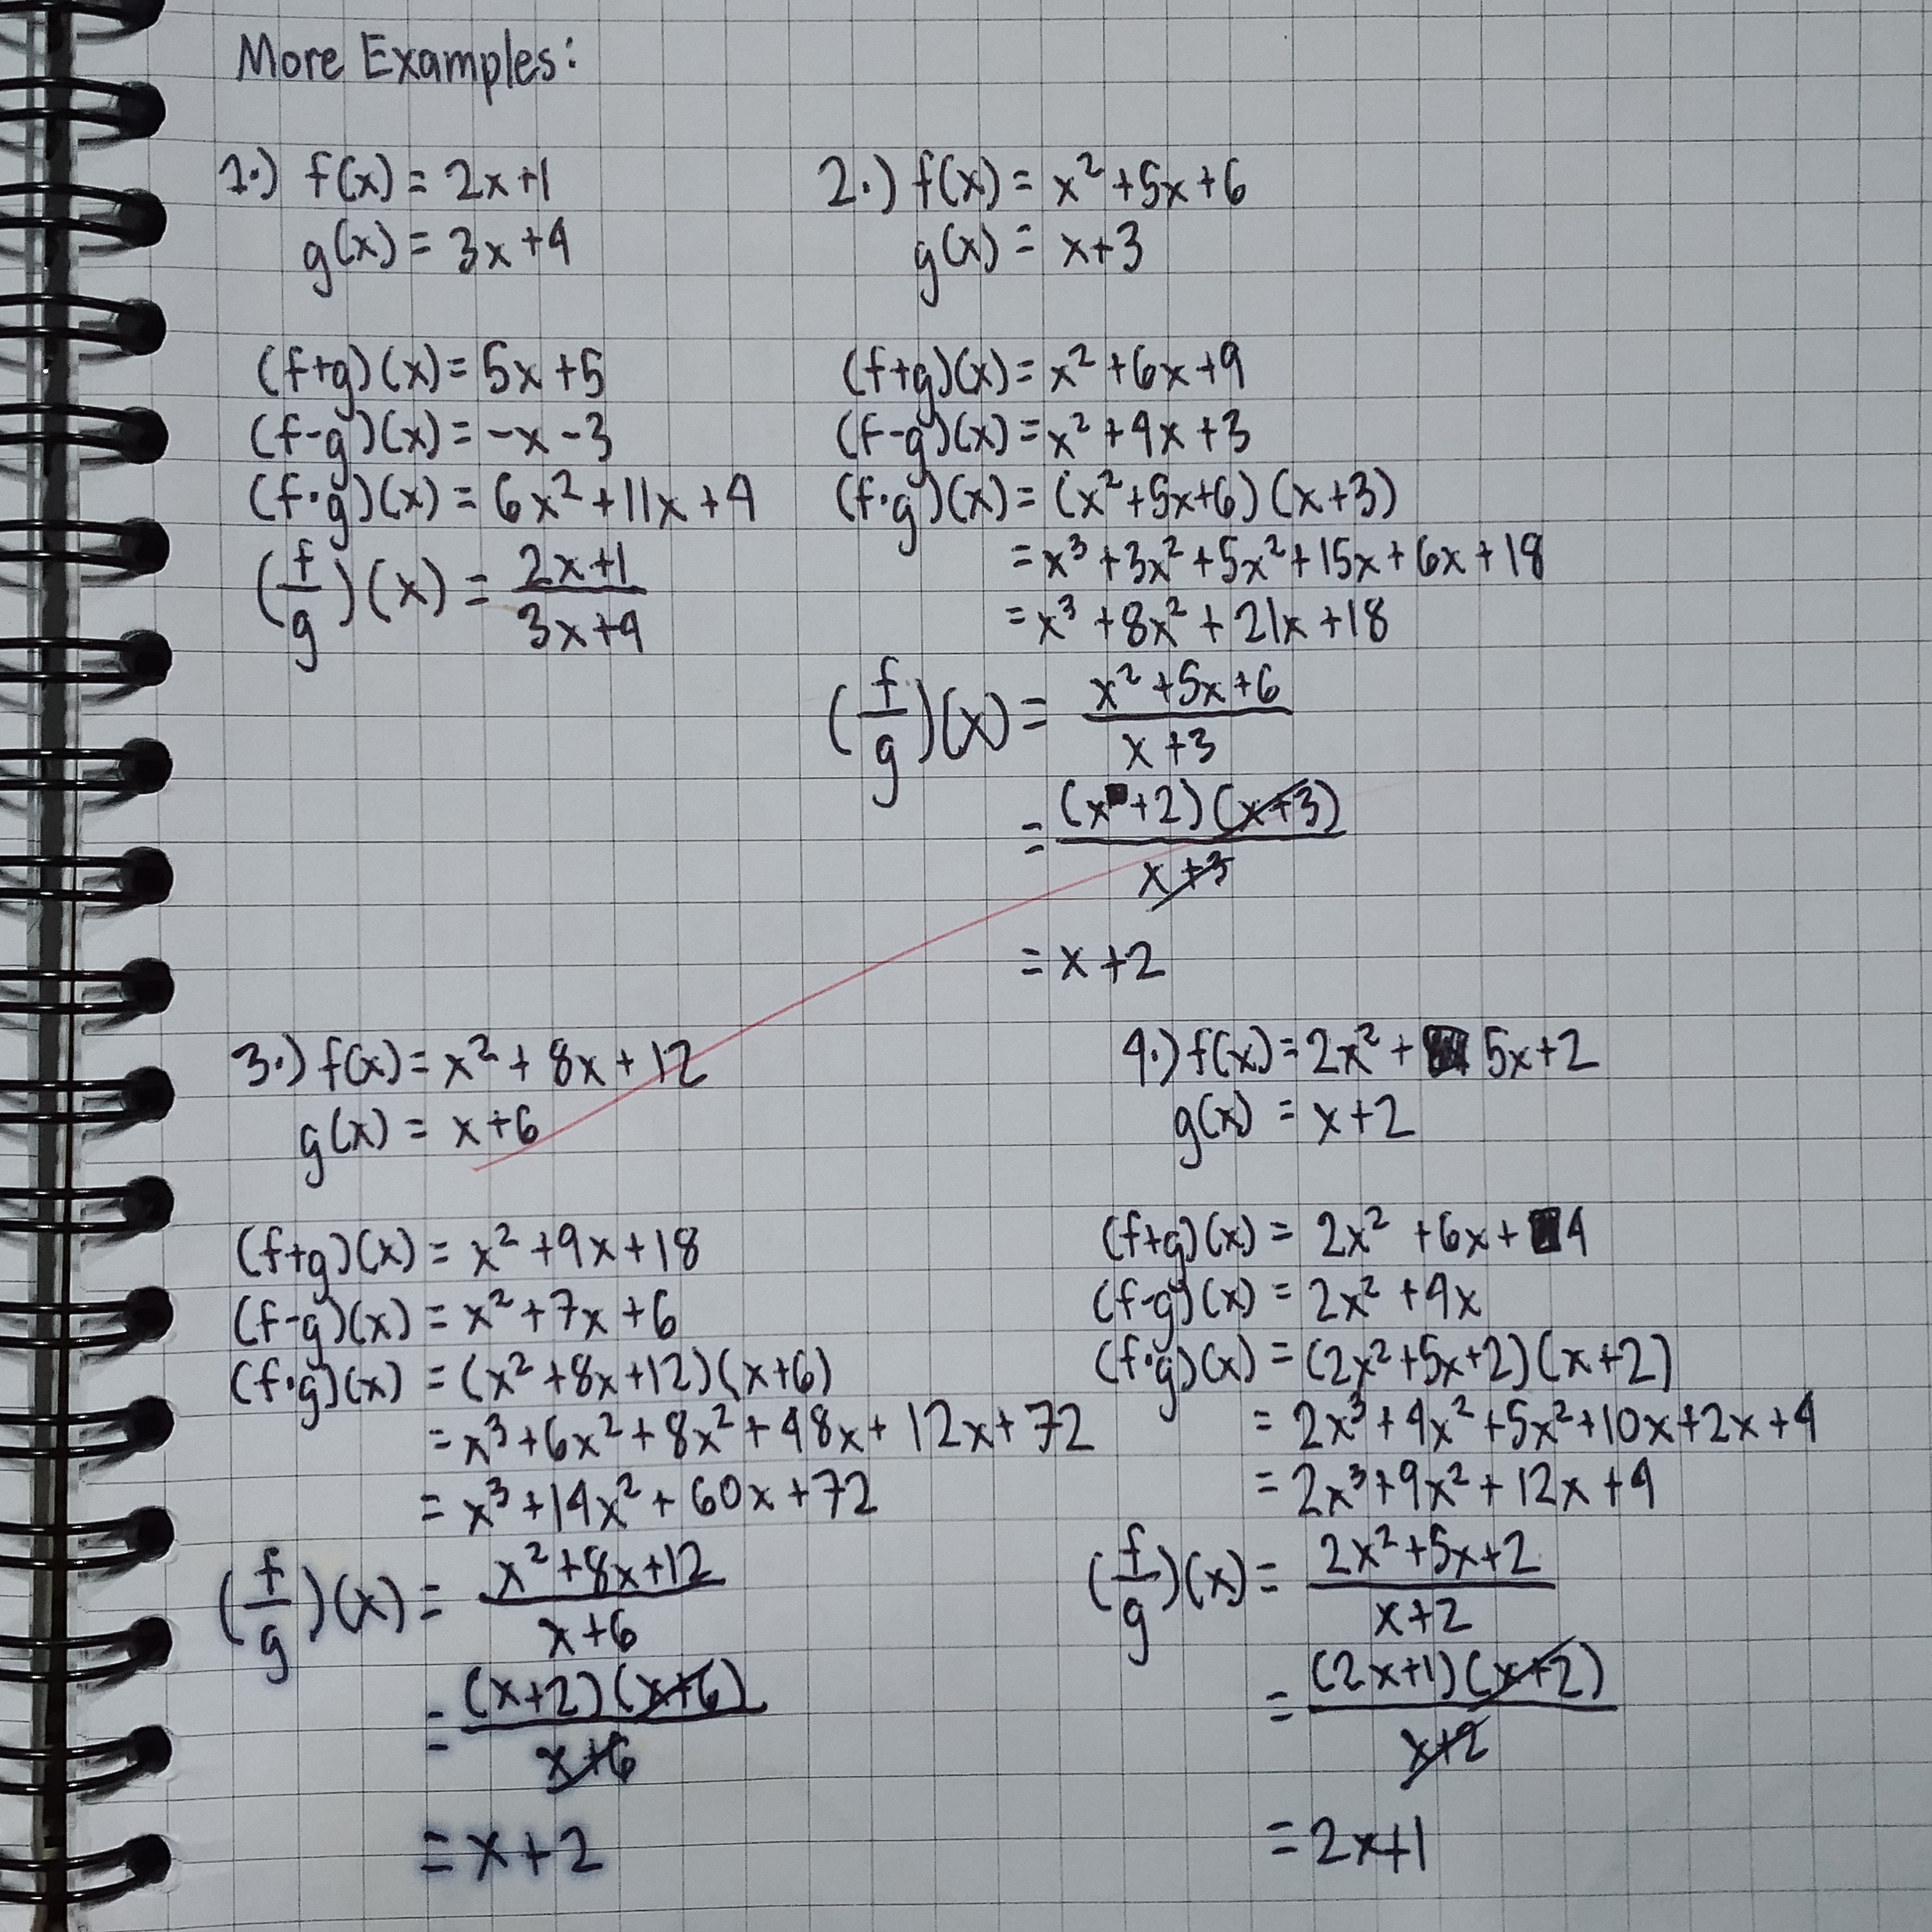 More Examples:
1.) f(x) = 2x+1
g(x) = 3x+4
(f+g)(x) = 5x+5
(f-g)(x) = -x-3
(f·g)(x) = 6x²+11x+4
(f/g)(x) = (2x+1)/(3x+4)
2.) f(x) = x²+5x+6
g(x) = x+3
(f+g)(x) = x²+6x+9
(f-g)(x) = x²+4x+3
(f·g)(x) = (x²+5x+6)(x+3)
= x³+3x²+5x²+15x+6x+18
= x³+8x²+21x+18
(f/g)(x) = (x²+5x+6)/(x+3)
= (x+2)(x+3)/(x+3)
= x+2
3.) f(x) = x²+8x+12
g(x) = x+6
(f+g)(x) = x²+9x+18
(f-g)(x) = x²+7x+6
(f·g)(x) = (x²+8x+12)(x+6)
= x³+6x²+8x²+48x+12x+72
= x³+14x²+60x+72
(f/g)(x) = (x²+8x+12)/(x+6)
= (x+2)(x+6)/(x+6)
= x+2
4.) f(x) = 2x²+5x+2
g(x) = x+2
(f+g)(x) = 2x²+6x+4
(f-g)(x) = 2x²+4x
(f·g)(x) = (2x²+5x+2)(x+2)
= 2x³+4x²+5x²+10x+2x+4
= 2x³+9x²+12x+4
(f/g)(x) = (2x²+5x+2)/(x+2)
= (2x+1)(x+2)/(x+2)
= 2x+1